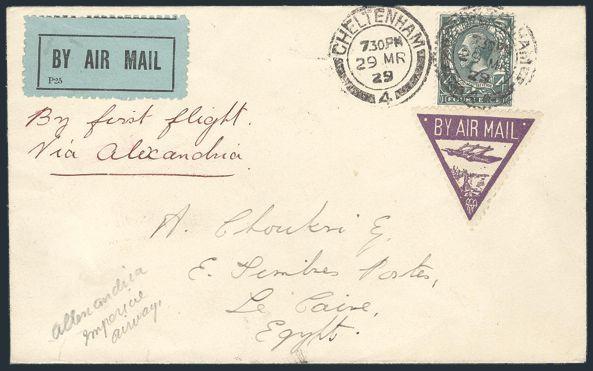 BY AIR MAIL
P25
CHELTENHAM
7.30PM
29 MR
29
4
FOURPENCE
BY AIR MAIL
By first flight.
Via Alexandria
A. Choukri E,
E. Timbres Postes,
Le Caire,
Egypt.
Allexandria
imperial
airways,